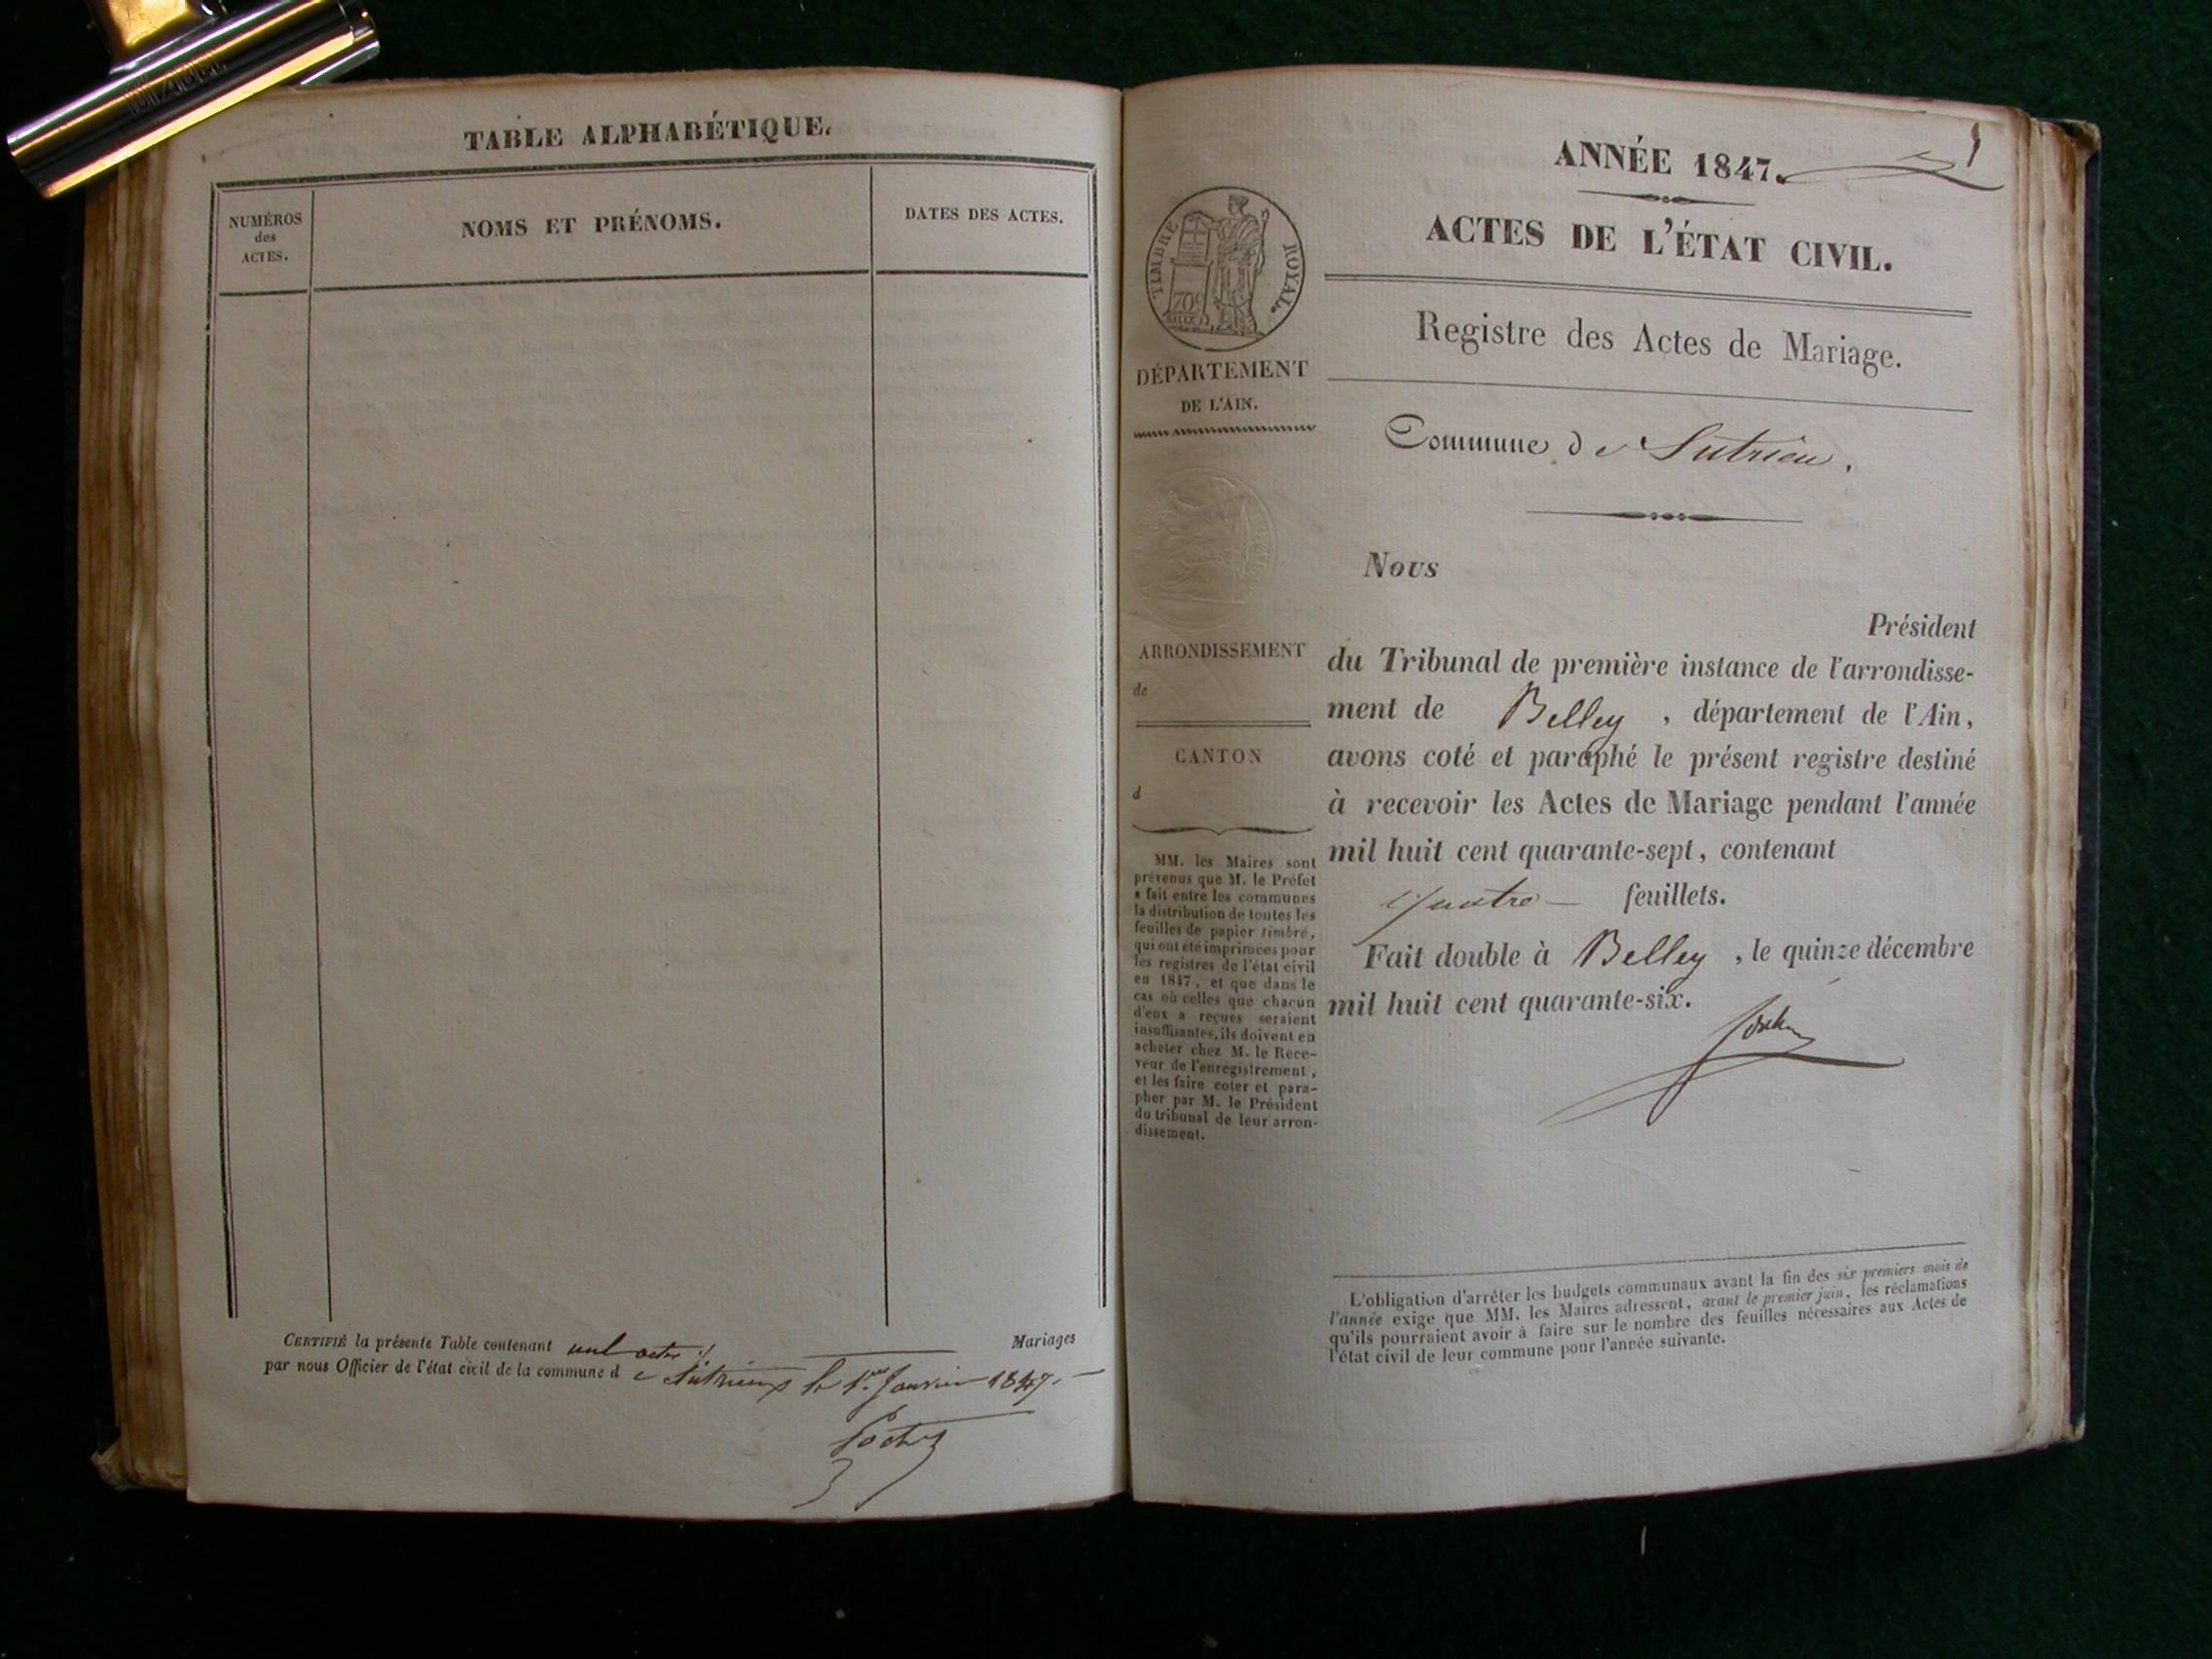 TABLE ALPHABÉTIQUE.
NUMÉROS
des
ACTES.
NOMS ET PRÉNOMS.
DATES DES ACTES.
CERTIFIÉ la présente Table contenant nul acte Mariages
par nous Officier de l'état civil de la commune d e Sutrieu le 1er Janvier 1847.
1
ANNÉE 1847.
ACTES DE L'ÉTAT CIVIL.
Registre des Actes de Mariage.
TIMBRE ROYAL.
70c
DÉPARTEMENT
DE L'AIN.
Commune de Sutrieu.
ARRONDISSEMENT
de
CANTON
d
MM. les Maires sont
prévenus que M. le Préfet
a fait entre les communes
la distribution de toutes les
feuilles de papier timbré,
qui ont été imprimées pour
les registres de l'état civil
en 1847, et que dans le
cas où celles que chacun
d'eux a reçues seraient
insuffisantes, ils doivent en
acheter chez M. le Rece-
veur de l'enregistrement,
et les faire coter et para-
pher par M. le Président
du tribunal de leur arron-
dissement.
Nous
Président
du Tribunal de première instance de l'arrondisse-
ment de Belley, département de l'Ain,
avons coté et paraphé le présent registre destiné
à recevoir les Actes de Mariage pendant l'année
mil huit cent quarante-sept, contenant
quatre feuillets.
Fait double à Belley, le quinze décembre
mil huit cent quarante-six.
L'obligation d'arrêter les budgets communaux avant la fin des six premiers mois de
l'année exige que MM. les Maires adressent, avant le premier juin, les réclamations
qu'ils pourraient avoir à faire sur le nombre des feuilles nécessaires aux Actes de
l'état civil de leur commune pour l'année suivante.